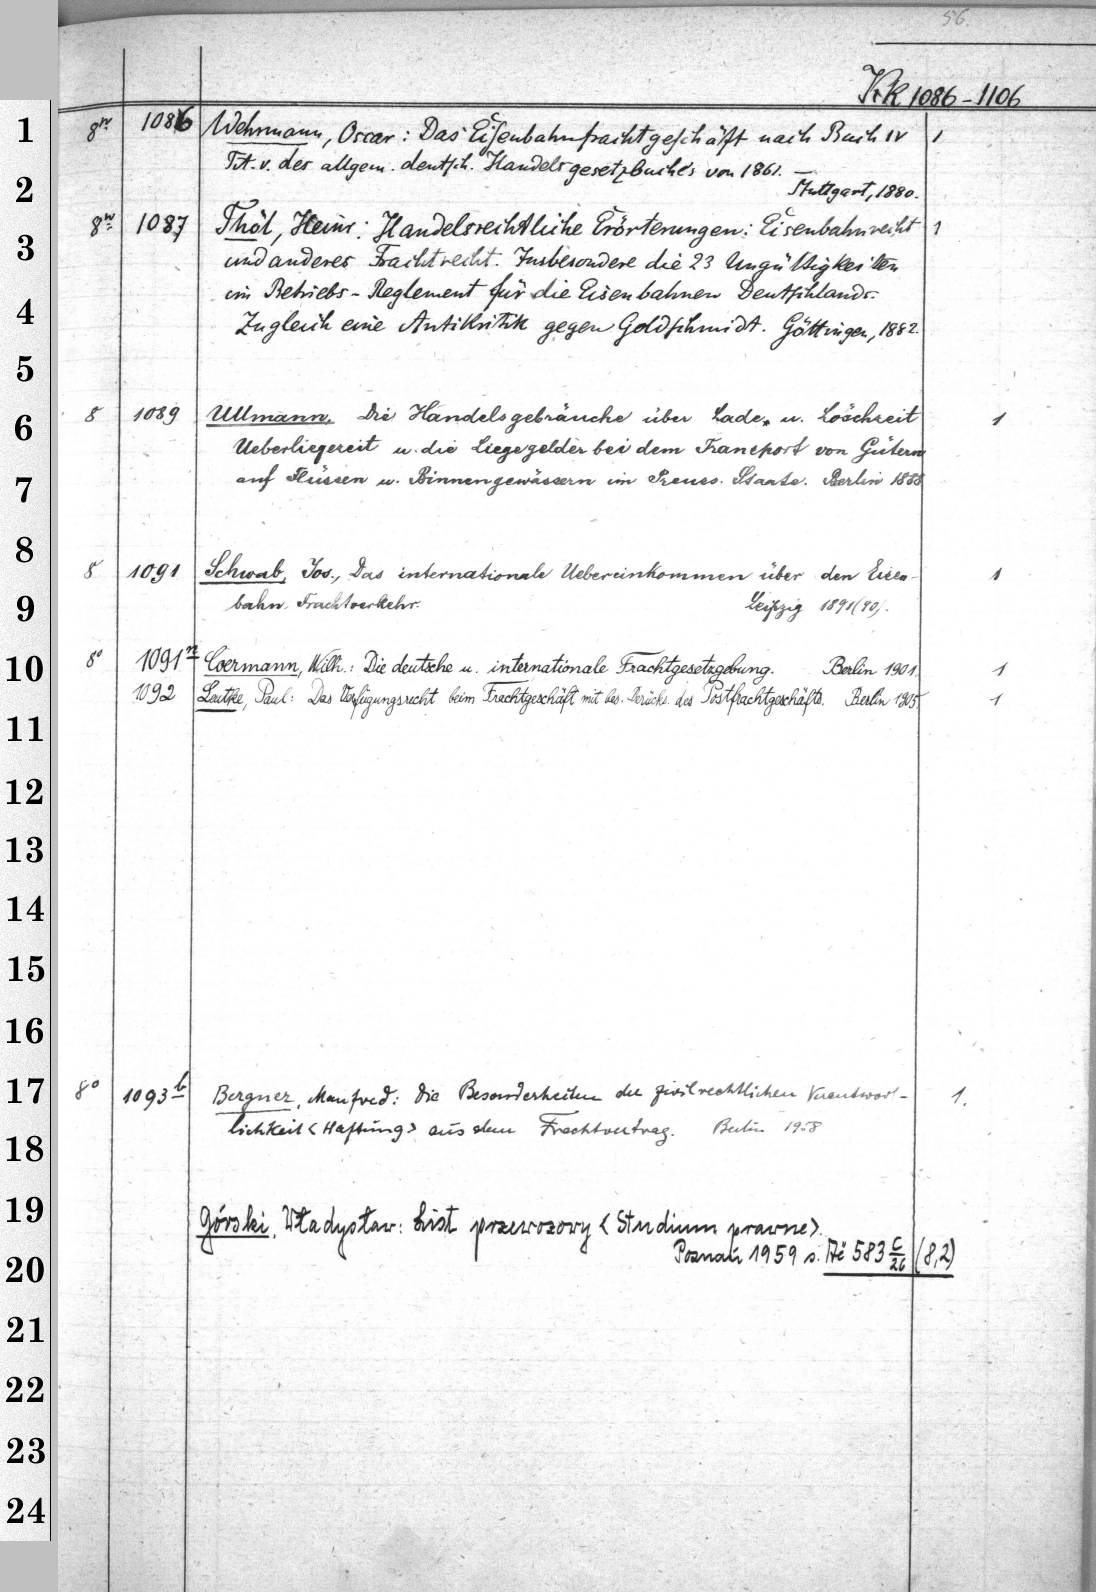 56.
Krk 1086-1106
1 8º 1086 Wehrmann, Oscar: Das Eisenbahnfrachtgeschäft nach Buch IV 1
2 Tit. v. des allgem. deutsch. Handelsgesetzbuches von 1861.
Stuttgart, 1880.
3 8º 1087 Thöl, Heinr: Handelsrechtliche Erörterungen: Eisenbahnrecht 1
und anderes Frachtrecht. Insbesondere die 23 Ungültigkeiten
4 im Betriebs-Reglement für die Eisenbahnen Deutschlands.
Zugleich eine Antikritik gegen Goldschmidt. Göttingen, 1882.
5
6 8 1089 Ullmann. Die Handelsgebräuche über Lade- u. Löschzeit 1
Ueberliegezeit u. die Liegegelder bei dem Transport von Gütern
7 auf Flüssen u. Binnengewässern im Preuss. Staate. Berlin 1888
8 8 1091 Schwab, Jos., Das internationale Uebereinkommen über den Eisen- 1
9 bahn Frachtverkehr. Leipzig 1891(90).
10 8º 1091ª Coermann, Wilh.: Die deutsche u. internationale Frachtgesetzgebung. Berlin 1901. 1
1092 Leutke, Paul: Das Verfügungsrecht beim Frachtgeschäft mit bes. Berücks. des Postfrachtgeschäfts. Berlin 1905. 1
11
12
13
14
15
16
17 8º 1093b Bergner, Manfred: Die Besonderheiten der zivilrechtlichen Verantwort- 1.
lichkeit <Haftung> aus dem Frachtvertrag. Berlin 1958
18
19 Górski, Władysław: List przewozowy <Studium prawne>.
20 Poznań 1959 s. Ač 583 C/26 (8,2)
21
22
23
24